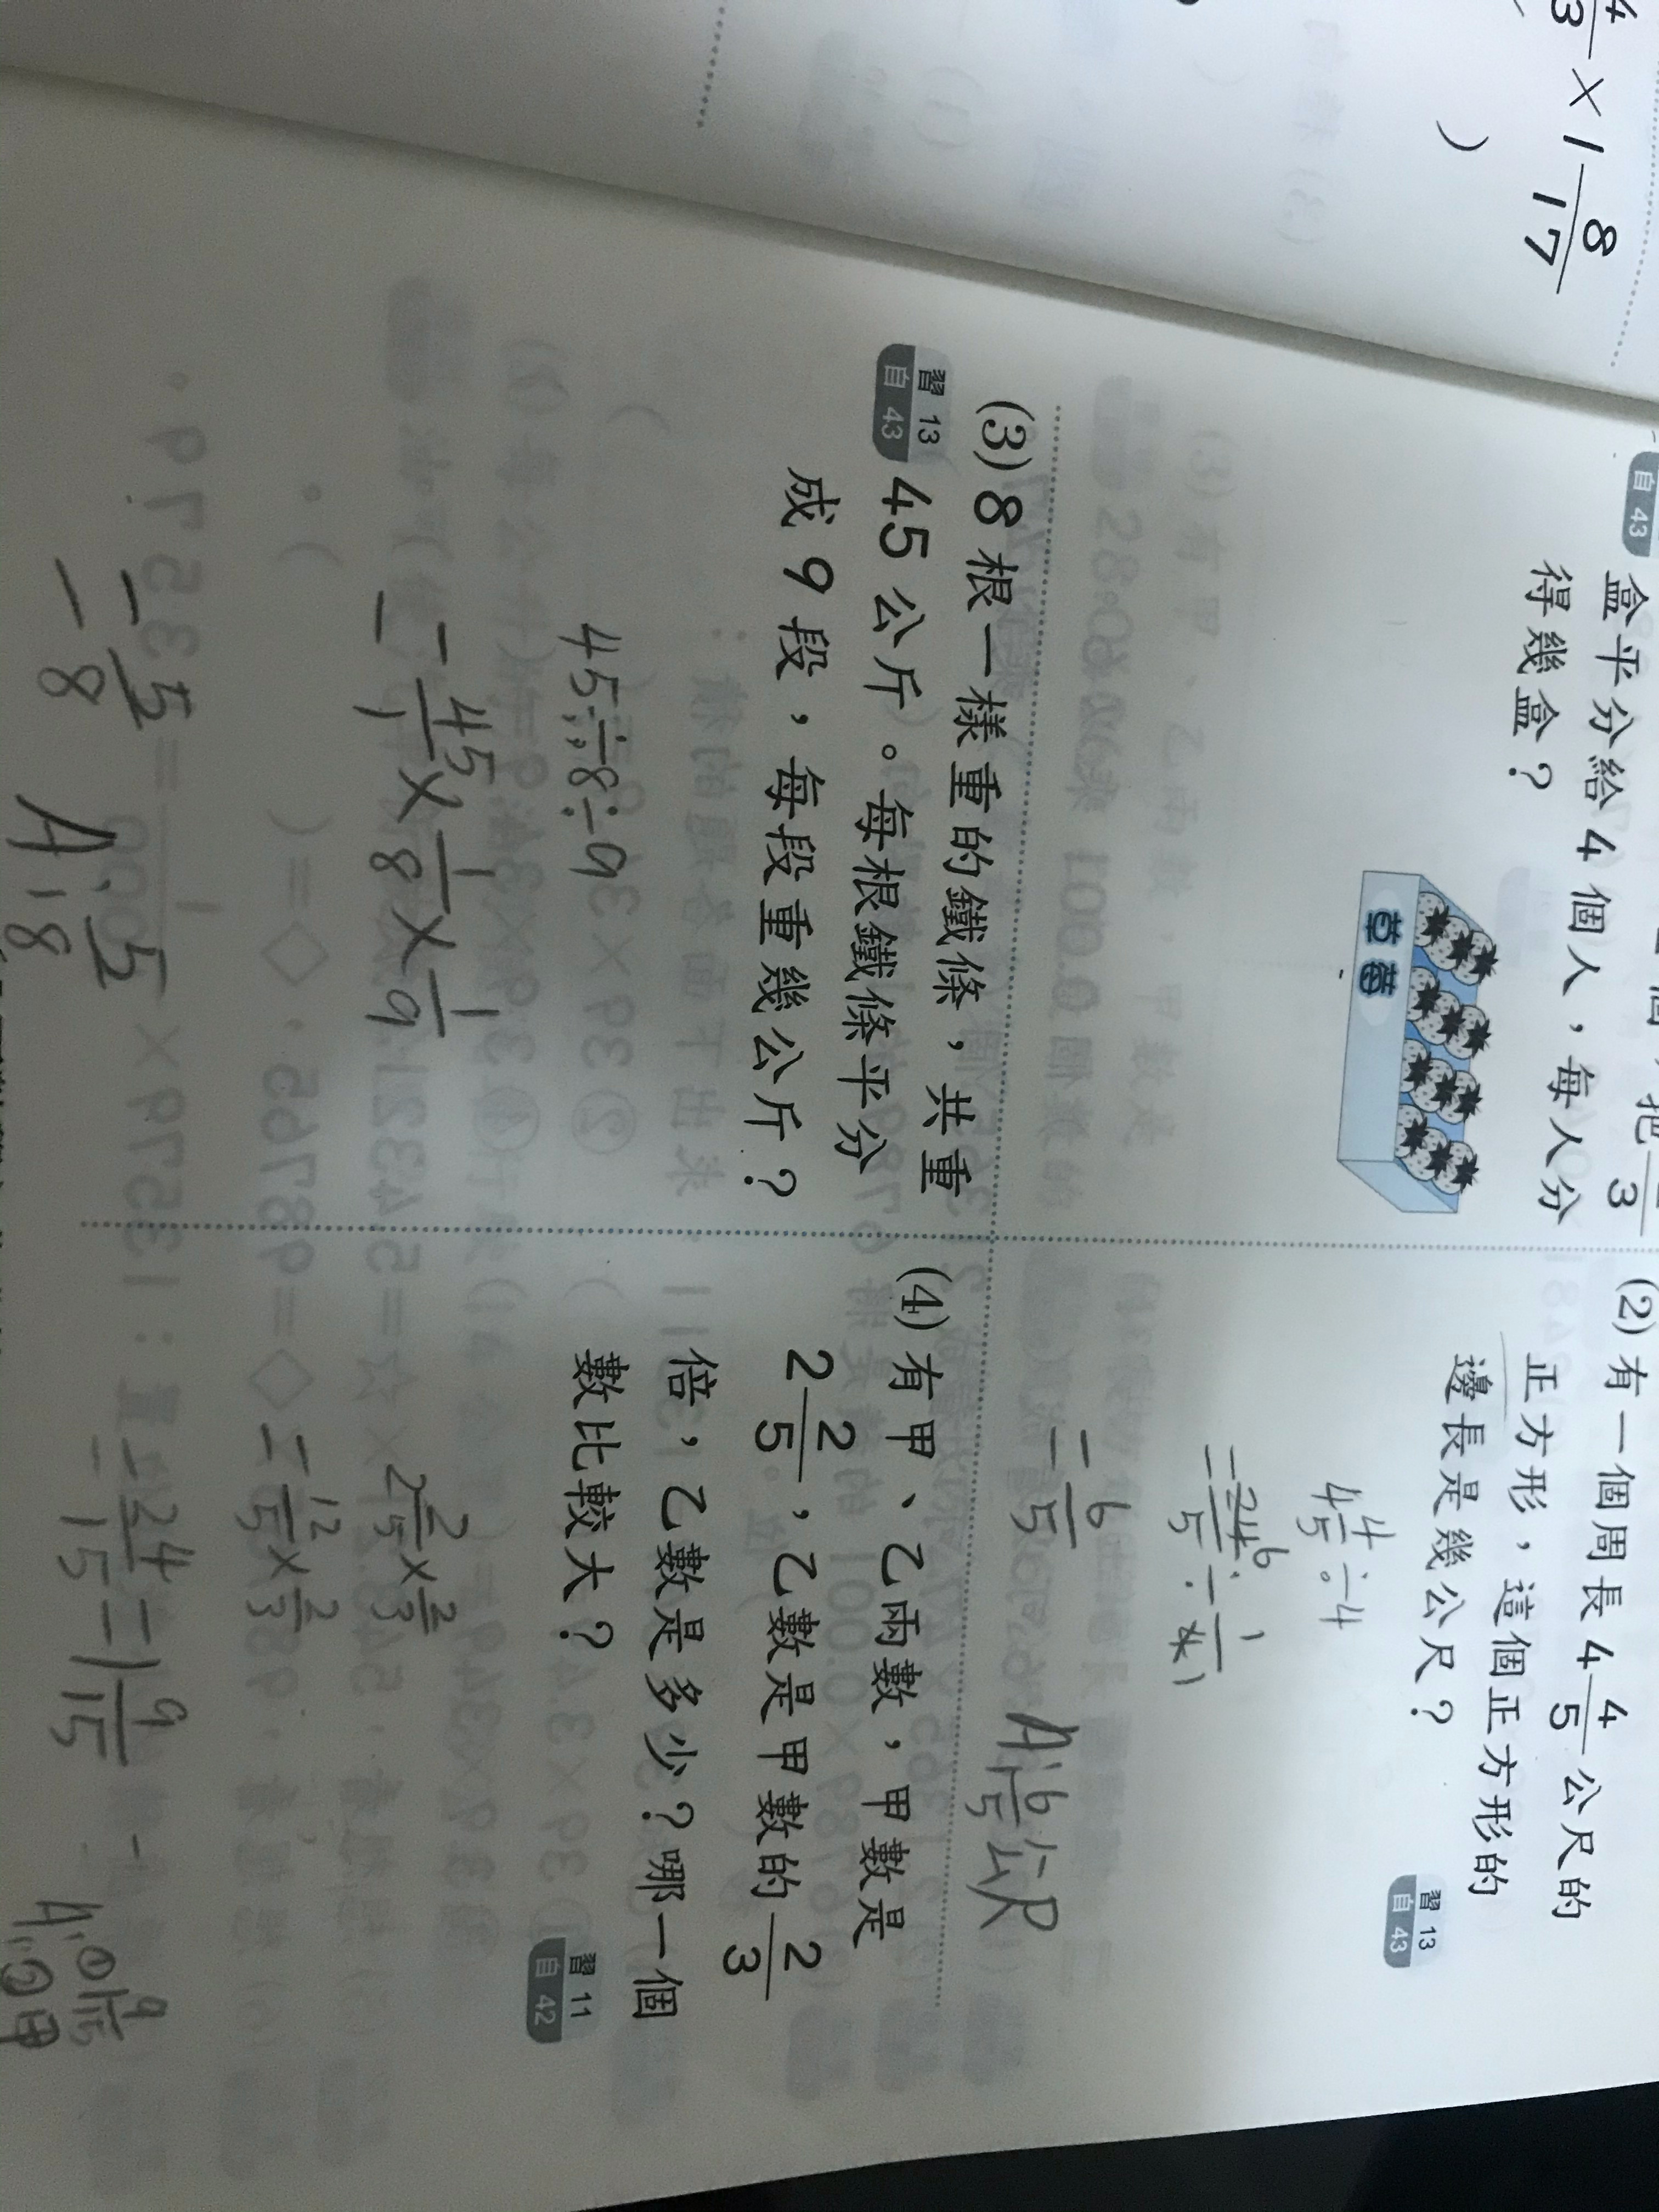 × 1 8/17
)
自 43
盒平分給 4 個人，每人分
得幾盒？
草莓
(2) 有一個周長 4 4/5 公尺的
正方形，這個正方形的
邊長是幾公尺？
習 13
自 43
4 4/5 ÷ 4
= 6/5
A: 6/5 公尺
(3) 8 根一樣重的鐵條，共重
習 13
自 43
45 公斤。每根鐵條平分
成 9 段，每段重幾公斤？
45 ÷ 8 ÷ 9
= 45/1 × 1/8 × 1/9
= 5/8
A: 5/8
(4) 有甲、乙兩數，甲數是
2 2/5，乙數是甲數的 2/3
倍，乙數是多少？哪一個
數比較大？
習 11
自 42
2 2/5 × 2/3
= 12/5 × 2/3
= 24/15 = 1 9/15
A: ① 1 9/15
② 甲